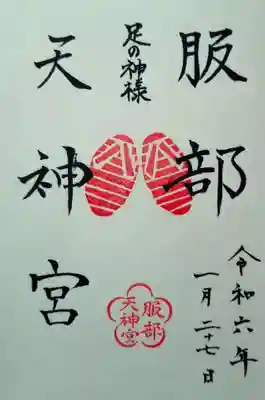 服部
天神宮
足の神様
令和六年
一月二十七日
服部
天神宮